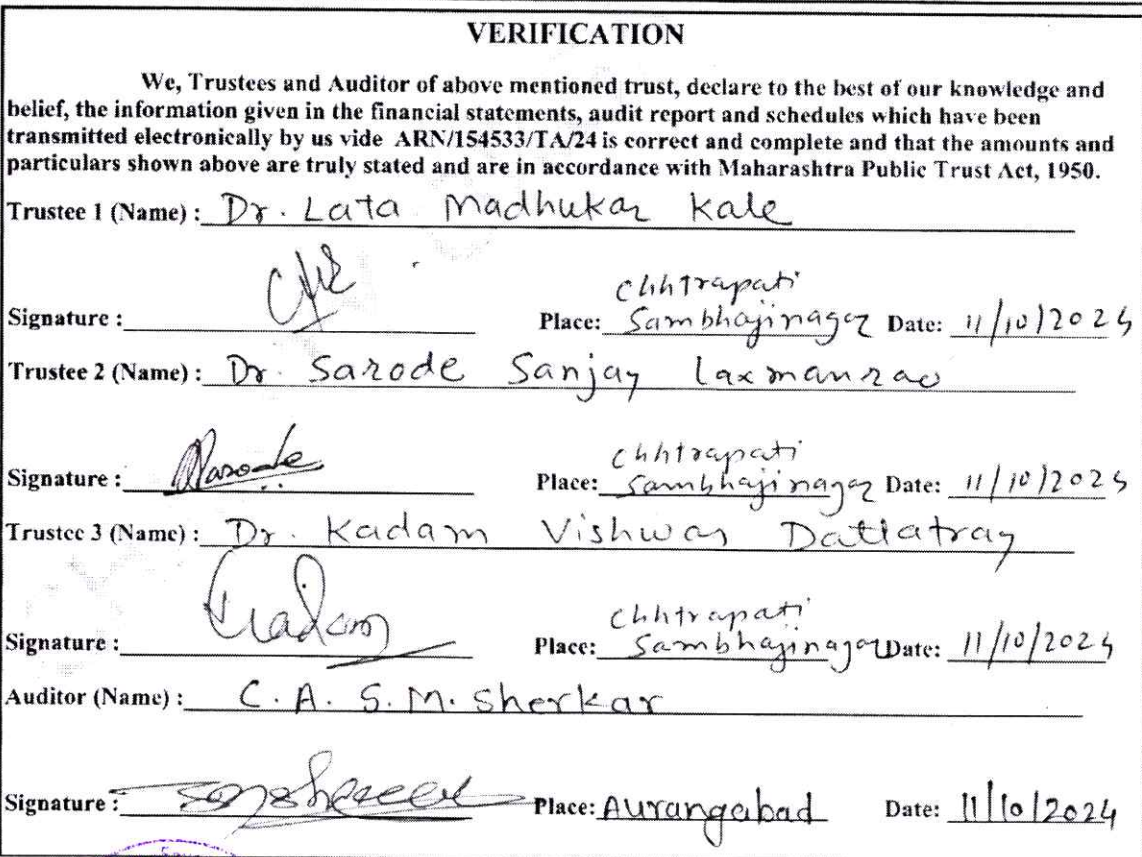 VERIFICATION
We, Trustees and Auditor of above mentioned trust, declare to the best of our knowledge and
belief, the information given in the financial statements, audit report and schedules which have been
transmitted electronically by us vide ARN/154533/TA/24 is correct and complete and that the amounts and
particulars shown above are truly stated and are in accordance with Maharashtra Public Trust Act, 1950.
Trustee 1 (Name) : Dr. Lata Madhukar Kale
Chhtrapati
Signature : Place: Sambhajinagar Date: 11/10/2024
Trustee 2 (Name) : Dr. Sarode Sanjay Laxmanrao
Chhtrapati
Signature : Sarode Place: Sambhajinagar Date: 11/10/2024
Trustee 3 (Name) : Dr. Kadam Vishwas Dattatray
Chhtrapati
Signature : Kadam Place: Sambhajinagar Date: 11/10/2024
Auditor (Name) : C. A. S. M. Sherkar
Signature : Place: Aurangabad Date: 11/10/2024